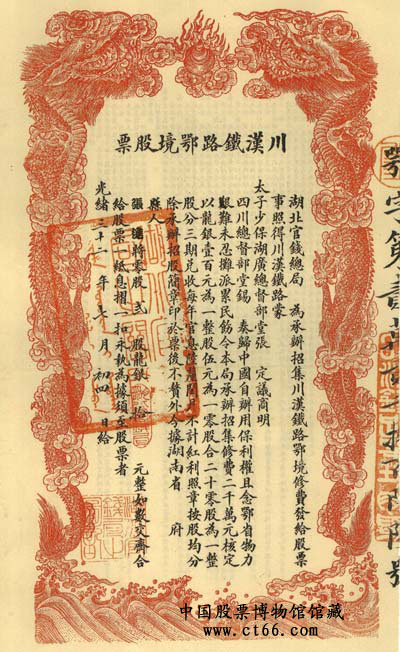 川漢鐵路鄂境股票
湖北官錢總局 為承辦招集川漢鐵路鄂境修費發給股票
事照得川漢鐵路蒙
太子少保湖廣總督部堂張 定議商明
四川總督部堂錫 奏歸中國自辦用保利權且念鄂省物力
艱難未忍攤派累民飭令本局承辦招集修費二千萬元核定
以龍銀壹百元為一整股伍元為一零股合二十零股為一整
股分三期兌收每年官息 閏月不計紅利照章按股均分
除承辦招股簡章印於票後不贅外今據湖南省 府
縣人
將零股 弍 股龍銀 拾 元整如數交齊合
給股票一紙息摺一扣永執為據須至股票者
光緒三十二年七月初四日給
鄂字第壹萬 號
中国股票博物馆馆藏
www.ct66.com